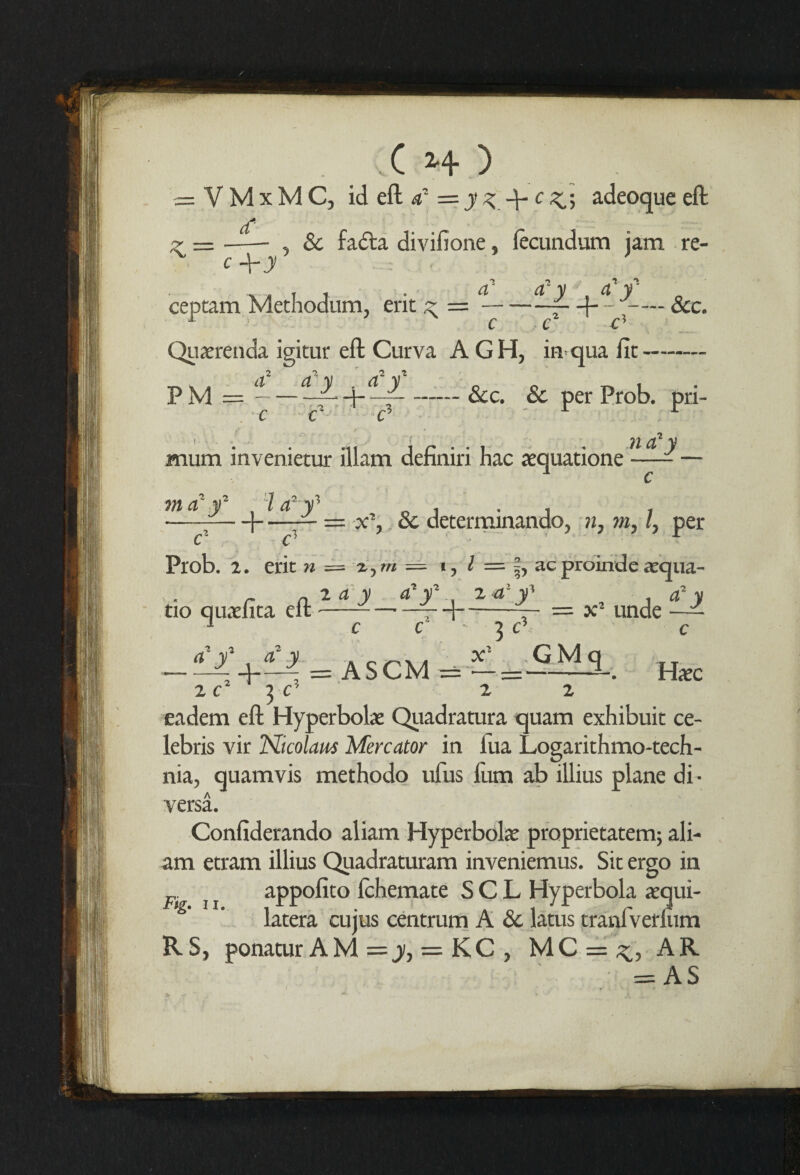 ( 24 )
= V M x M C, id eſt a² = y z + c z; adeoque eſt
z = a² / c + y , & facta diviſione, ſecundum jam re-
ceptam Methodum, erit z = a²/c — a² y/c² + a² y²/c³ — &c.
Quærenda igitur eſt Curva A G H, in qua ſit ——
P M = a²/c — a² y/c² + a² y²/c³ —— &c. & per Prob. pri-
mum invenietur illam definiri hac æquatione n a² y/c —
m a² y²/c² + l a² y³/c³ = x², & determinando, n, m, l, per
Prob. 2. erit n = 2, m = 1, l = ⅔, ac proinde æqua-
tio quæſita eſt 2 a² y/c — a² y²/c² + 2 a² y³/3 c³ = x² unde a² y/c
— a² y²/2 c² + a² y/3 c³ = A S C M = x²/2 = G M q/2. Hæc
eadem eſt Hyperbolæ Quadratura quam exhibuit ce-
lebris vir Nicolaus Mercator in ſua Logarithmo-tech-
nia, quamvis methodo uſus ſum ab illius plane di-
versâ.
Conſiderando aliam Hyperbolæ proprietatem; ali-
am etram illius Quadraturam inveniemus. Sit ergo in
Fig. 11. appoſito ſchemate S C L Hyperbola æqui-
latera cujus centrum A & latus tranſverſum
R S, ponatur A M = y, = K C , M C = z, A R
= A S